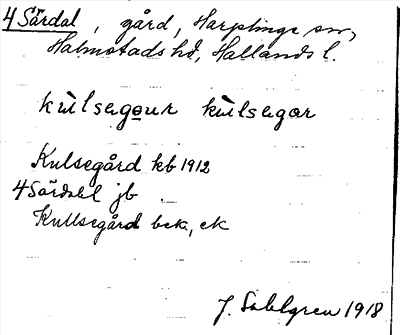 4 Särdal, gård, Harplinge sn,
Halmstads hd, Hallands l.
kùlsegɑur kùlsegɑr
Kulsegård kb 1912
4 Särdal jb
Kullsegård bek, ek
J. Sahlgren 1918